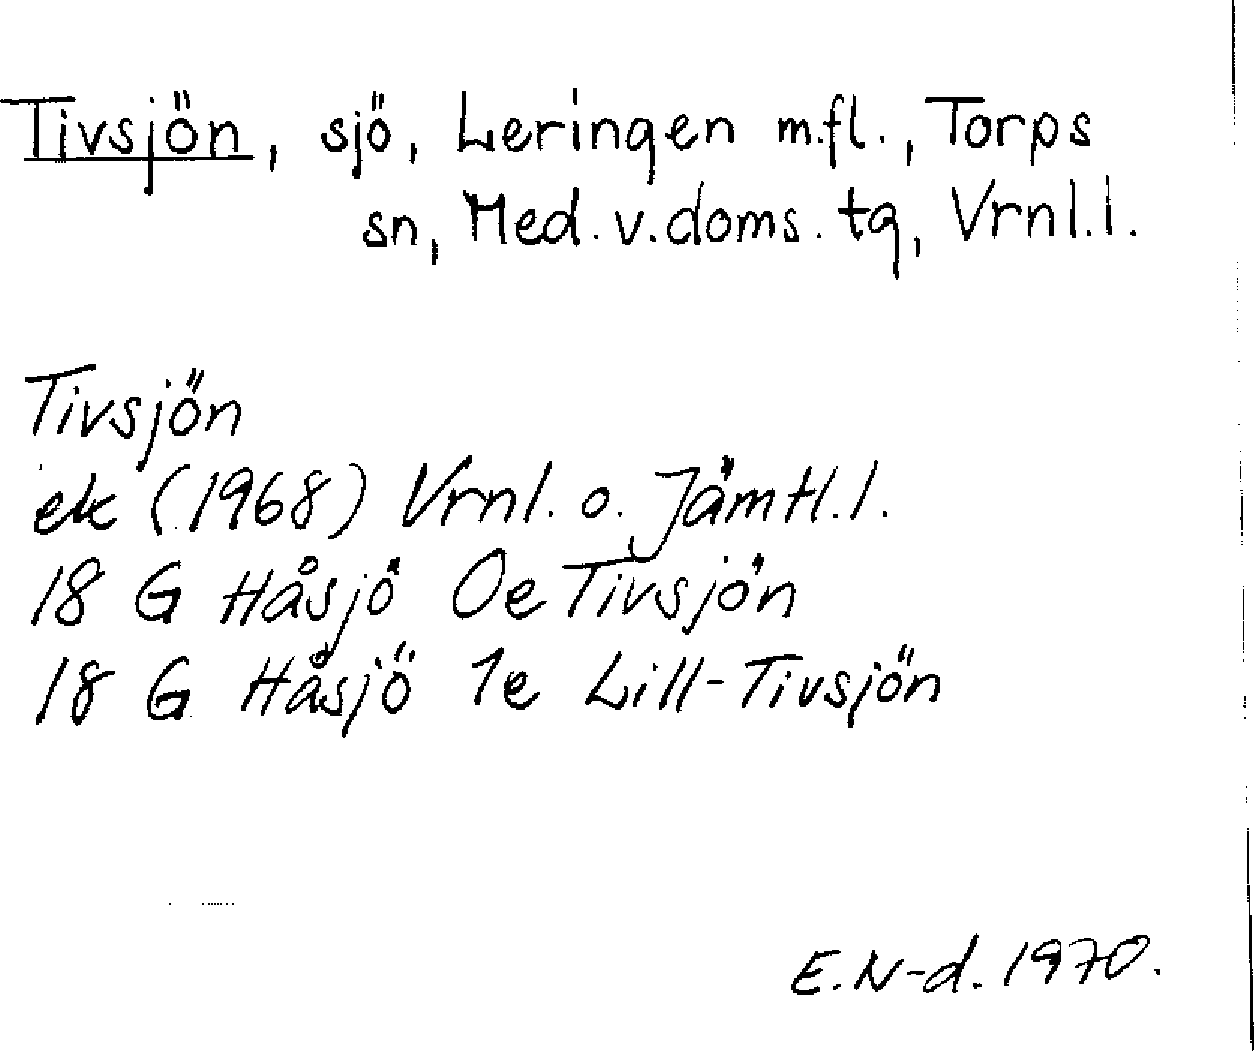 Tivsjön, sjö, Leringen m.fl., Torps
sn, Med. v. doms. tg, Vrnl. l.
Tivsjön
ek (1968) Vrnl. o. Jämtl. l.
18 G Håsjö 0e Tivsjön
18 G Håsjö 1e Lill-Tivsjön
E.N-d. 1970.